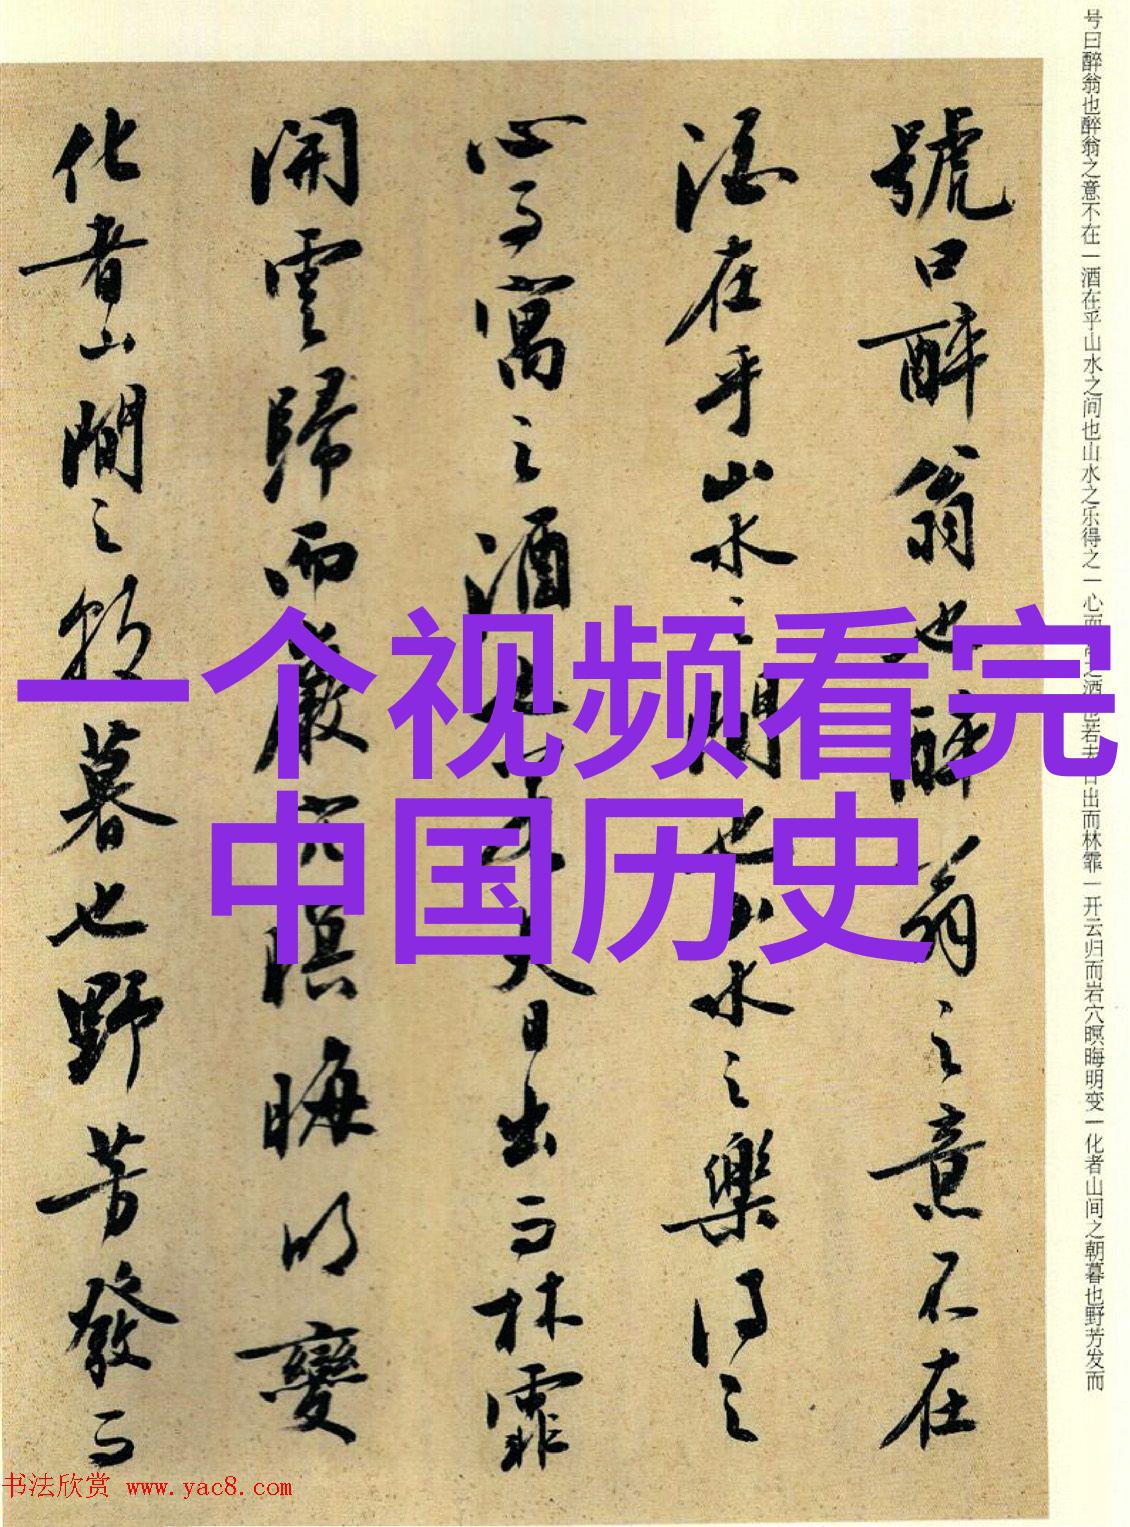 号曰醉翁也醉翁之意不在一酒在乎山水之间也山水之乐得之一心而寓之酒也若夫日出而林霏一开云归而岩穴暝晦明变一化者山间之朝暮也野芳发而
號曰醉翁也醉翁之意不在
酒在乎山水之間也山水之樂得之
心而寓之酒也若夫日出而林霏
開雲歸而巖穴暝晦明變
化者山間之朝暮也野芳發而
一个视频看完
中国历史
书法欣赏 www.yac8.com